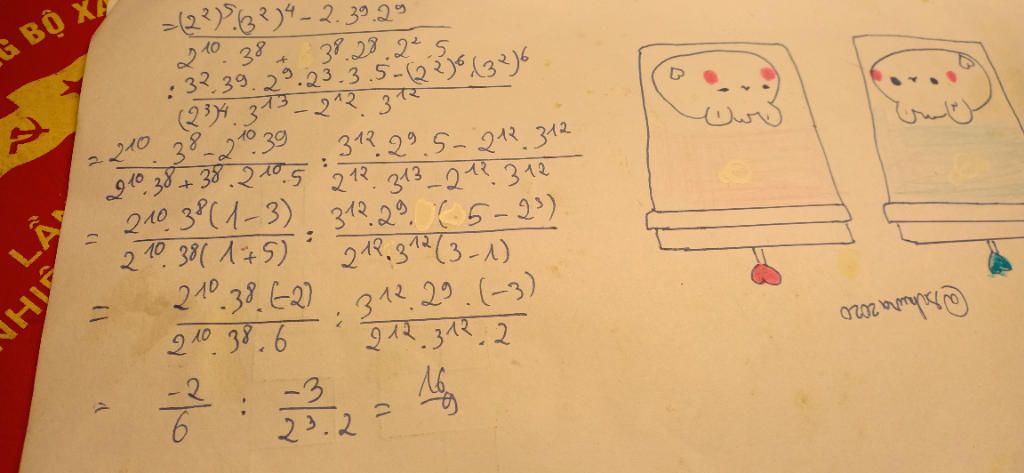 NG BỘ XÃ
LẦN
NHIỆ
= (2²)⁵.(3²)⁴ - 2.3⁹.2⁹ / 2¹⁰.3⁸ + 3⁸.2⁸.2².5
: 3².3⁹.2⁹.2³.3.5 - (2²)⁶.(3²)⁶ / (2³)⁴.3¹³ - 2¹².3¹²
= 2¹⁰.3⁸ - 2¹⁰.3⁹ / 2¹⁰.3⁸ + 3⁸.2¹⁰.5 : 3¹².2⁹.5 - 2¹².3¹² / 2¹².3¹³ - 2¹².3¹²
= 2¹⁰.3⁸(1 - 3) / 2¹⁰.3⁸(1 + 5) : 3¹².2⁹.(5 - 2³) / 2¹².3¹²(3 - 1)
= 2¹⁰.3⁸.(-2) / 2¹⁰.3⁸.6 : 3¹².2⁹.(-3) / 2¹².3¹².2
= -2 / 6 : -3 / 2³.2 = 16 / 9